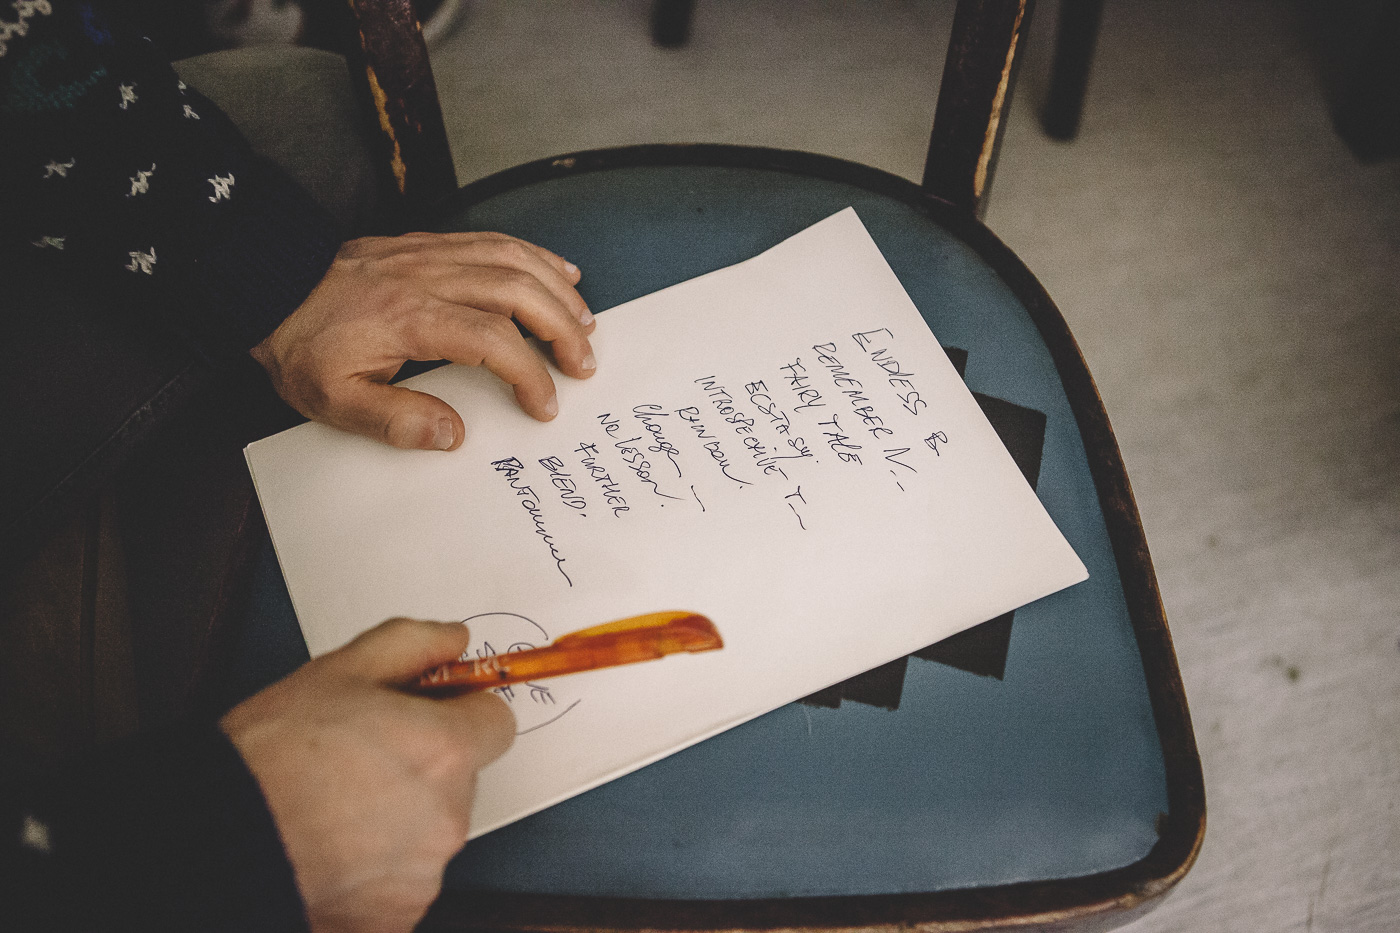 ENDLESS B
REMEMBER N--
FAIRY TALE
ECSTASY.
INTROSPECTIVE T--
RUNDOWN.
Change --
NO LESSON.
FURTHER
BLEND.